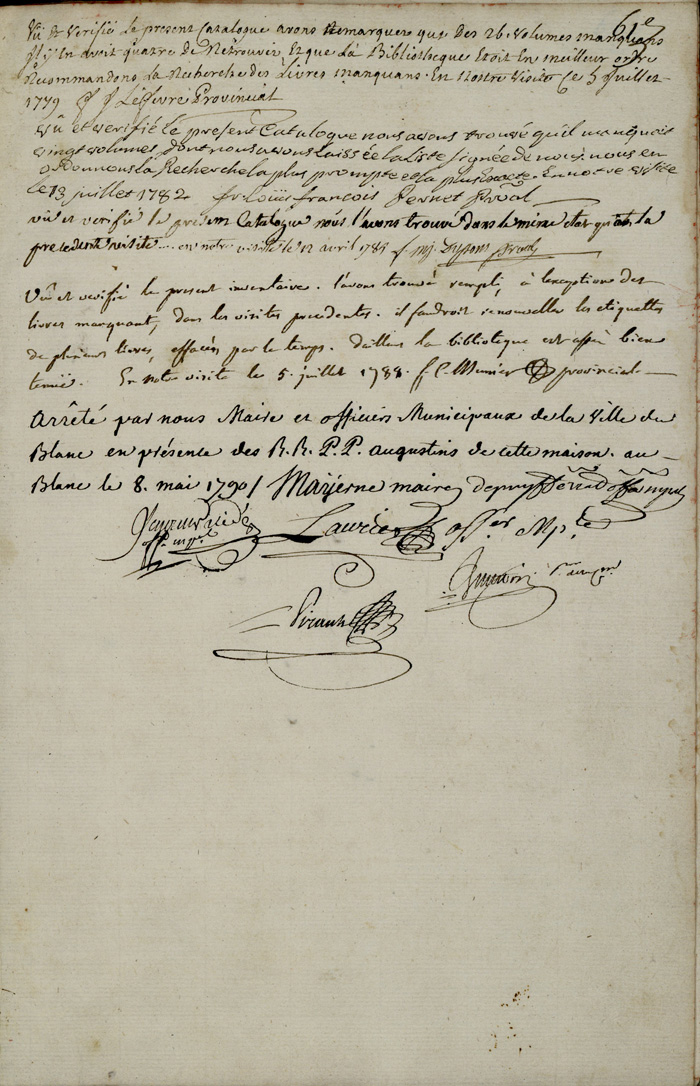 61e
Vû et Verifié le present Catalogue avons Remarquer que Des 26 Volumes manquans
Il y En avoit quatre de Retrouvéz Et que La Bibliotheque Etoit En meilleur ordre
Recommandons La Recherche des Livres manquans. En Nostre Visite Ce 5 Juillet
1779 f J Lefevre Provincial
vû et verifié le present Catalogue nous avons trouvé qu'il manquoit
vingt volumes dont nous avons laissée la liste signée de nous, nous en
ordonnons la Recherche la plus prompte et la plus Exacte. En notre visite
le 13 juillet 1782 fr Loüis françois Pernet Pröal
vû et verifié le present Catalogue nous l'avons trouvé dans le même état qu'à la
precedente visite en notre visite le 12 avril 1785 f
Vû et verifié le present inventaire. l'avons trouvé rempli, à l'exception des
livres manquant, dans les visites precedentes. il faudroit renouveller les etiquettes
de plusieurs livres, effacées par le temps. dailleurs la biblioteque est assés bien
tenüe. En notre visite le 5. juillet 1788. f. C. Munier provincial
Arrêté par nous Maire et officiers Municipaux de la Ville du
Blanc en présence des R.R. P.P. augustins de cette maison. au
Blanc le 8. mai 1790 / Marjerne maire
Laurier offer Mple
Pirault